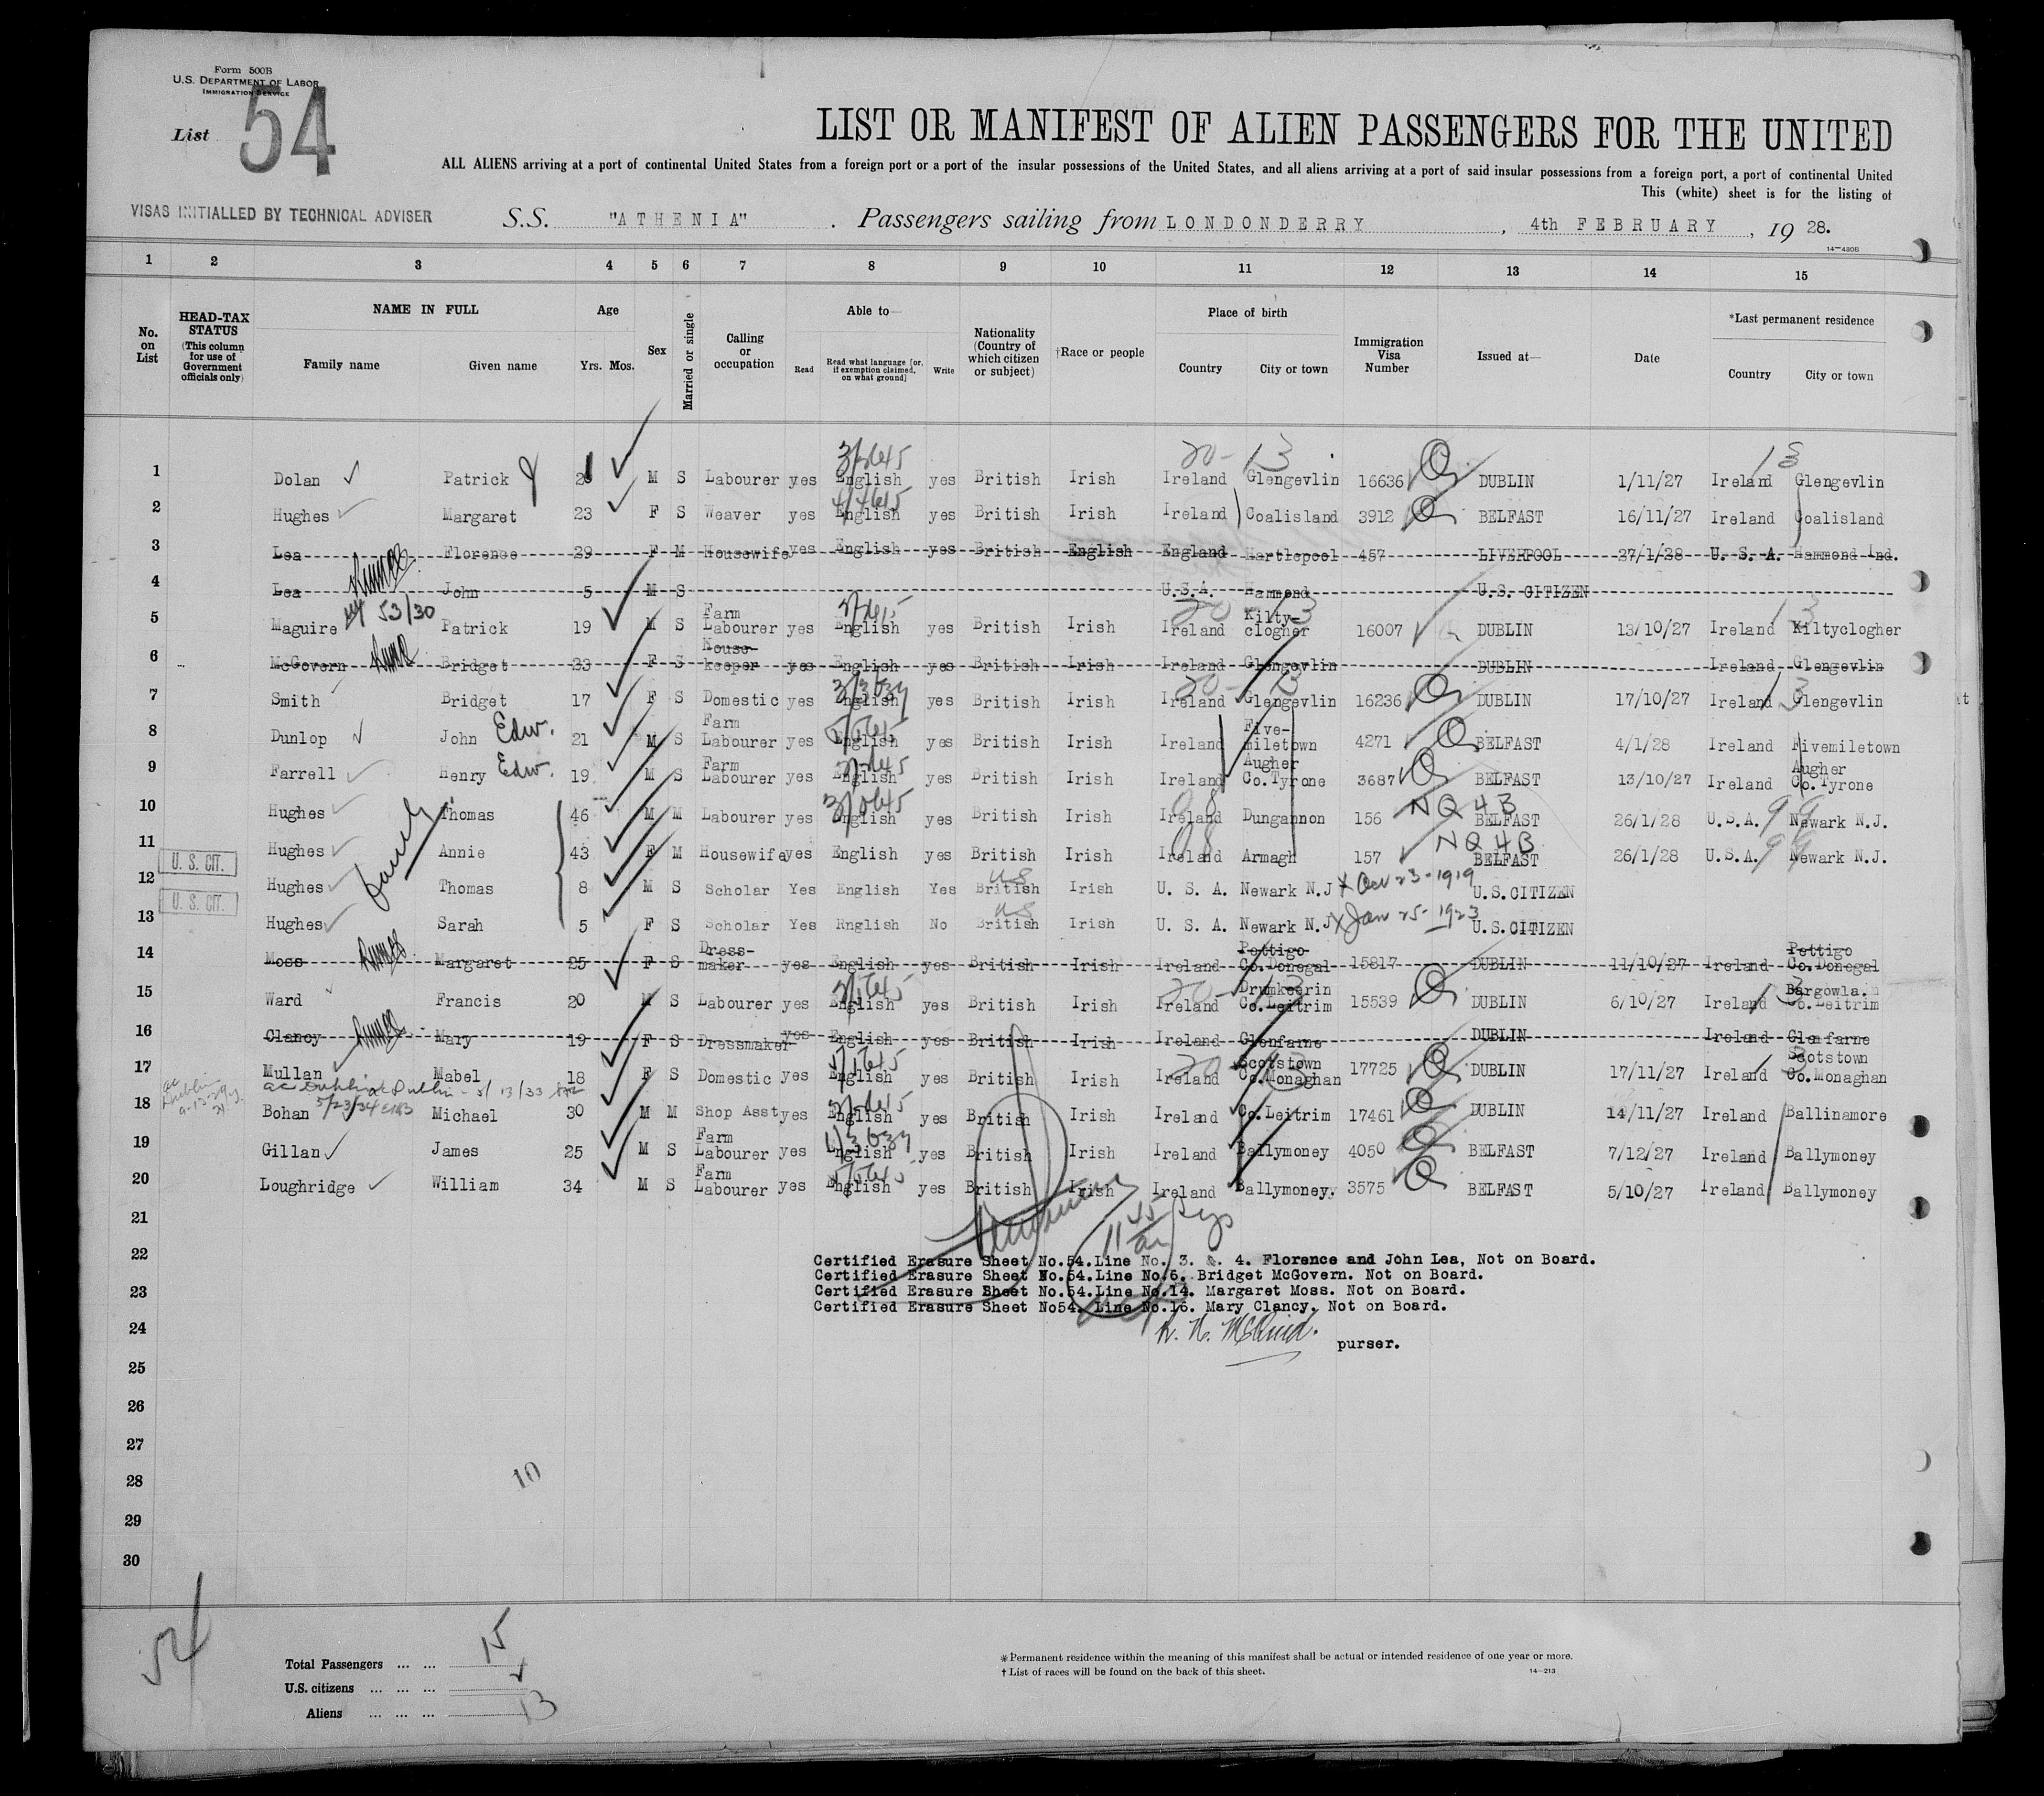 Form 500B
U.S. DEPARTMENT OF LABOR
IMMIGRATION SERVICE
List 54
LIST OR MANIFEST OF ALIEN PASSENGERS FOR THE UNITED
ALL ALIENS arriving at a port of continental United States from a foreign port or a port of the insular possessions of the United States, and all aliens arriving at a port of said insular possessions from a foreign port, a port of continental United
This (white) sheet is for the listing of
VISAS INITIALLED BY TECHNICAL ADVISER
S.S. "ATHENIA". Passengers sailing from LONDONDERRY, 4th FEBRUARY, 19 28.
14-430B
1 2 3 4 5 6 7 8 9 10 11 12 13 14 15
No. on List
HEAD-TAX STATUS (This column for use of Government officials only)
NAME IN FULL
Family name Given name
Age
Yrs. Mos.
Sex
Married or single
Calling or occupation
Able to—
Read Read what language [or, if exemption claimed, on what ground] Write
Nationality (Country of which citizen or subject)
†Race or people
Place of birth
Country City or town
Immigration Visa Number
Issued at—
Date
*Last permanent residence
Country City or town
20-13 13
1 Dolan Patrick M S Labourer yes English yes British Irish Ireland Glengevlin 16636 DUBLIN 1/11/27 Ireland Glengevlin
2 Hughes Margaret 23 F S Weaver yes English yes British Irish Ireland Coalisland 3912 BELFAST 16/11/27 Ireland Coalisland
3 Lea Florense 29 F M Housewife yes English yes British English England Hartlepool 457 LIVERPOOL 27/1/28 U. S. A. Hammond Ind.
4 Lea John 5 M S U.S.A. Hammond U.S. CITIZEN
53/30
5 Maguire Patrick 19 M S Farm Labourer yes English yes British Irish Ireland Kilty-clogher 16007 DUBLIN 13/10/27 Ireland Kiltyclogher
6 McGovern Bridget 23 F S House-keeper yes English yes British Irish Ireland Glengevlin DUBLIN Ireland Glengevlin
7 Smith Bridget 17 F S Domestic yes English yes British Irish Ireland Glengevlin 16236 DUBLIN 17/10/27 Ireland Glengevlin
8 Dunlop John Edw. 21 M S Farm Labourer yes English yes British Irish Ireland Five-miletown 4271 BELFAST 4/1/28 Ireland Fivemiletown
9 Farrell Henry Edw. 19 M S Farm Labourer yes English yes British Irish Ireland Augher Co. Tyrone 3687 BELFAST 13/10/27 Ireland Augher Co. Tyrone
10 Hughes Thomas 46 M M Labourer yes English yes British Irish Ireland Dungannon 156 NQ 4B BELFAST 26/1/28 U.S.A. 99 Newark N.J.
family
11 Hughes Annie 43 F M Housewife yes English yes British Irish Ireland Armagh 157 NQ 4B BELFAST 26/1/28 U.S.A. 99 Newark N.J.
12 U. S. CIT. Hughes Thomas 8 M S Scholar Yes English Yes British US Irish U. S. A. Newark N.J x Oct 23-1919 U.S.CITIZEN
13 U. S. CIT. Hughes Sarah 5 F S Scholar Yes English No British US Irish U. S. A. Newark N.J x Jan 25-1923 U.S.CITIZEN
14 Moss Margaret 25 F S Dress-maker yes English yes British Irish Ireland Pettigo Co. Donegal 15817 DUBLIN 11/10/27 Ireland Pettigo Co. Donegal
15 Ward Francis 20 M S Labourer yes English yes British Irish Ireland Drumkeerin Co. Leitrim 15539 DUBLIN 6/10/27 Ireland Bargowla. Co. Leitrim
16 Clancy Mary 19 F S Dressmaker yes English yes British Irish Ireland Glenfarne DUBLIN Ireland Glenfarne
17 Mullan Mabel 18 F S Domestic yes English yes British Irish Ireland Scotstown Co. Monaghan 17725 DUBLIN 17/11/27 Ireland Scotstown Co. Monaghan
18 Bohan Michael 30 M M Shop Asst yes English yes British Irish Ireland Co. Leitrim 17461 DUBLIN 14/11/27 Ireland Ballinamore
19 Gillan James 25 M S Farm Labourer yes English yes British Irish Ireland Ballymoney 4050 BELFAST 7/12/27 Ireland Ballymoney
20 Loughridge William 34 M S Farm Labourer yes English yes British Irish Ireland Ballymoney. 3575 BELFAST 5/10/27 Ireland Ballymoney
21
22
Certified Erasure Sheet No.54.Line No. 3. &. 4. Florence and John Lea, Not on Board.
Certified Erasure Sheet No.54.Line No.6. Bridget McGovern. Not on Board.
23
Certified Erasure Sheet No.54.Line No.14. Margaret Moss. Not on Board.
Certified Erasure Sheet No54. Line No.16. Mary Clancy. Not on Board.
24
purser.
25
26
27
28
10
29
30
54
Total Passengers ... ... 15
U.S. citizens ... ... ...
Aliens ... ... ... 13
*Permanent residence within the meaning of this manifest shall be actual or intended residence of one year or more.
† List of races will be found on the back of this sheet.
14-213